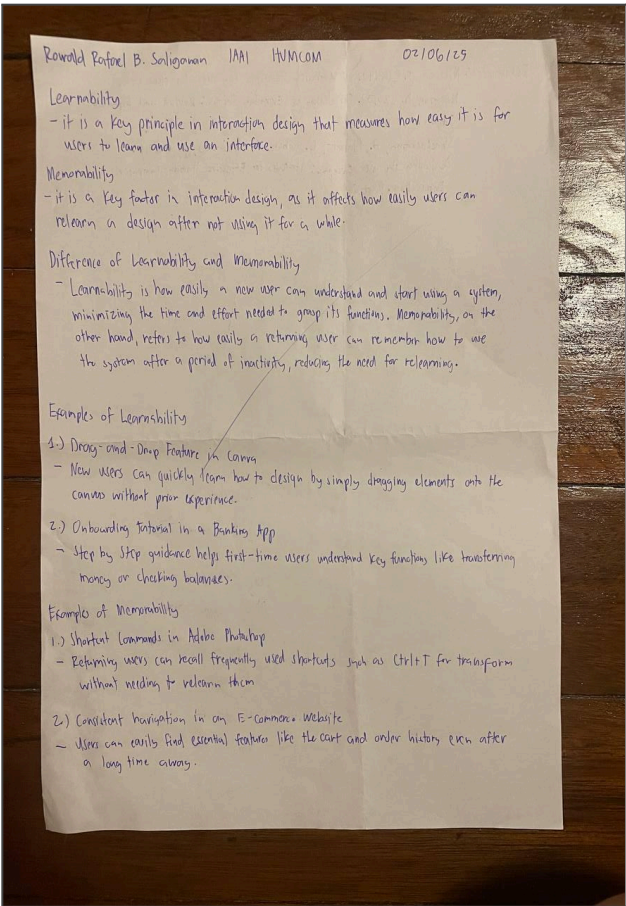 Rowald Rafael B. Saliganan IAA1 HUMCOM 02/06/25
Learnability
- it is a key principle in interaction design that measures how easy it is for
users to learn and use an interface.
Memorability
- it is a key factor in interaction design, as it affects how easily users can
relearn a design after not using it for a while.
Difference of Learnability and Memorability
- Learnability is how easily a new user can understand and start using a system,
minimizing the time and effort needed to grasp its functions. Memorability, on the
other hand, refers to how easily a returning user can remembr how to use
the system after a period of inactivity, reducing the need for relearning.
Examples of Learnability
1.) Drag-and-Drop Feature in Canva
- New users can quickly learn how to design by simply dragging elements onto the
canvas without prior experience.
2.) Onboarding tutorial in a Banking App
- Step by Step guidance helps first-time users understand key functions like transferring
money or checking balances.
Examples of Memorability
1.) Shortcut Commands in Adobe Photoshop
- Returning users can recall frequently used shortcuts such as Ctrl+T for transform
without needing to relearn them
2.) Consistent navigation in an E-commerce Website
- Users can easily find essential features like the cart and order history even after
a long time away.